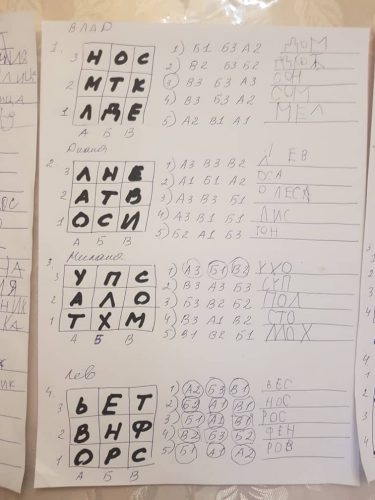 ВЛАД
1.
3 Н О С 1) Б1 Б3 А2 ДОМ
2 М Т К 2) В2 Б3 Б2
1 Л Д Е 3) В3 Б3 А3 СОН
А Б В 4) В3 Б3 А2 СОМ
5) А2 В1 А1 МЕЛ
Диана
2.
3 Л Н Е 1) А3 В3 В2 Л ЕВ
2 А Т В 2) А1 Б1 А2 ОСА
1 О С И 3) А3 В3 Б1
4) А3 В1 Б1 ЛИС
А Б В 5) Б2 А1 Б3
Милана
3.
3 У П С 1) А3 Б1 В2 УХО
2 А Л О 2) В3 А3 Б3 СУП
1 Т Х М 3) Б3 В2 Б2 ПОЛ
А Б В 4) В3 А1 В2 СТО
5) В1 В2 Б1 МОХ
Лев
4.
3 Ь Е Т 1) А2 Б3 В1 ВЕС
2 В Н Ф 2) Б2 А1 В1 НОС
1 О Р С 3) Б1 А1 В1 РОС
А Б В 4) В2 Б3 Б2 ФЕН
5) Б1 А1 А2 РОВ